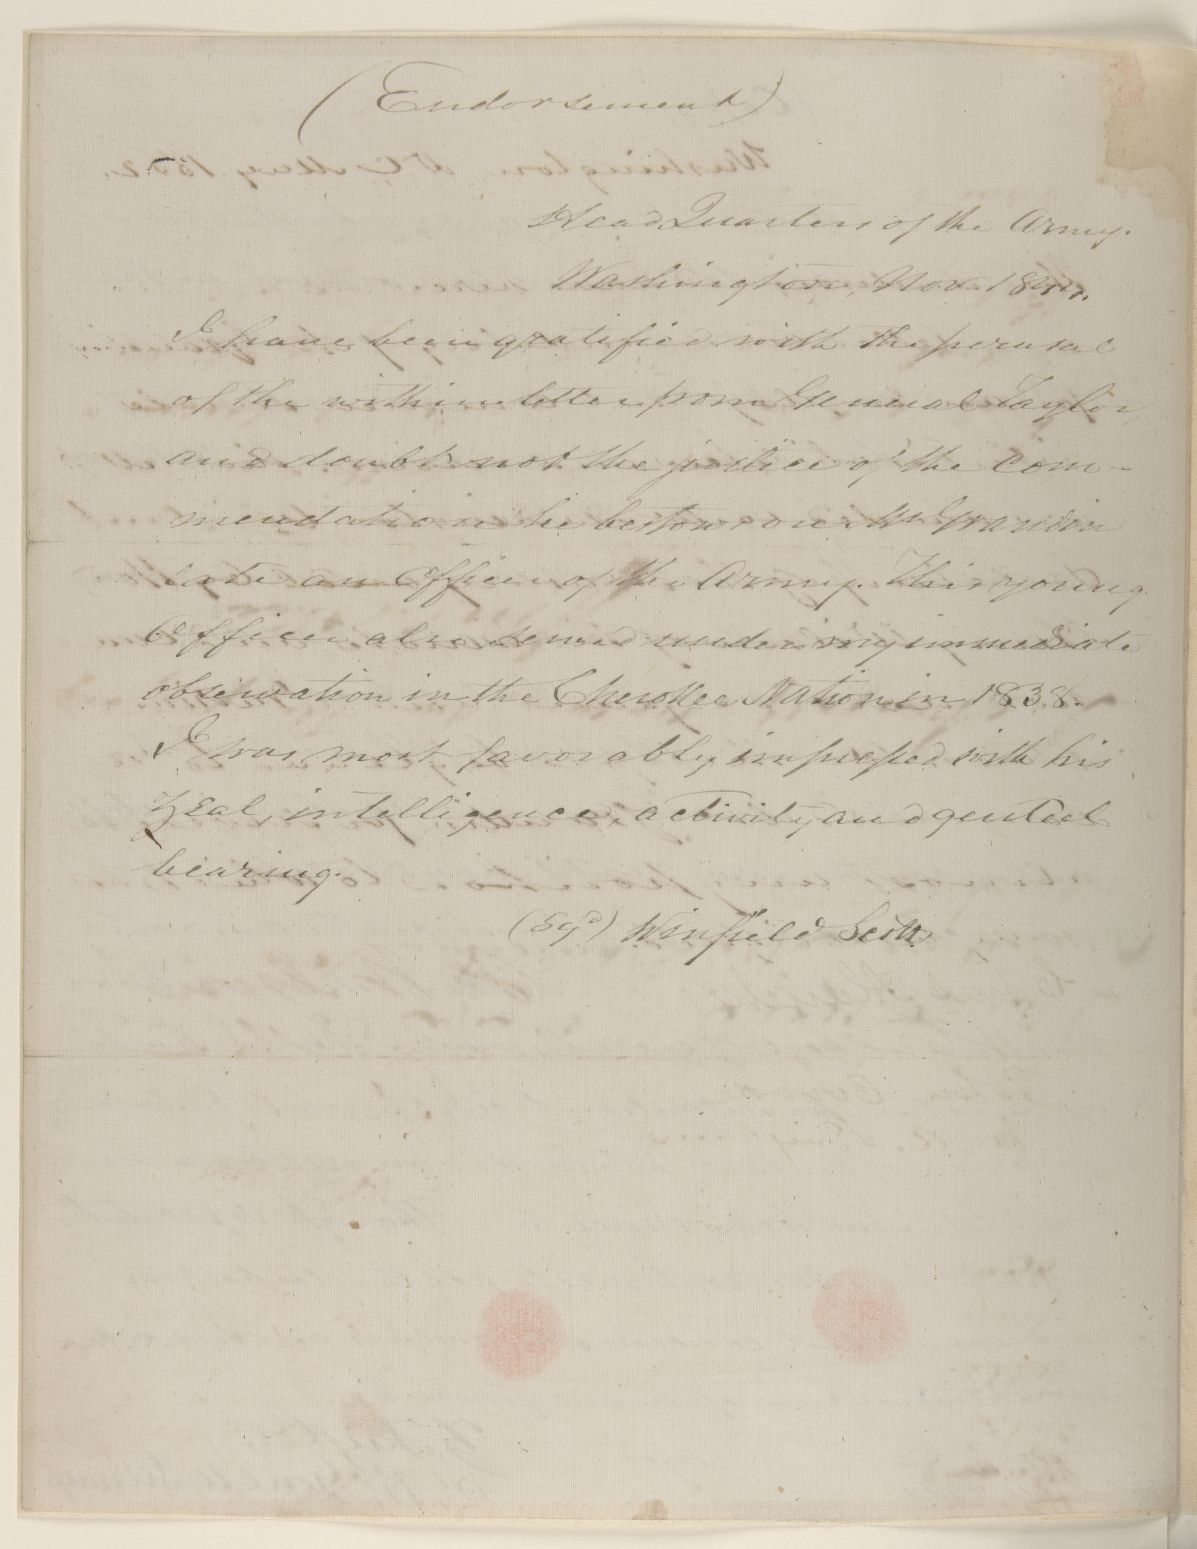 (Endorsement)
Head Quarters of the Army.
Washington, Nov. 1844.
I have been gratified with the perusal
of the within letter from General Taylor,
and doubt not the justice of the com-
mendation he bestows on Mr
late an Officer of the Army. This young
Officer also served under my immediate
observation in the Cherokee Nation in 1838.
I was most favorably impressed with his
zeal, intelligence, activity and genteel
bearing.
(Sgd) Winfield Scott